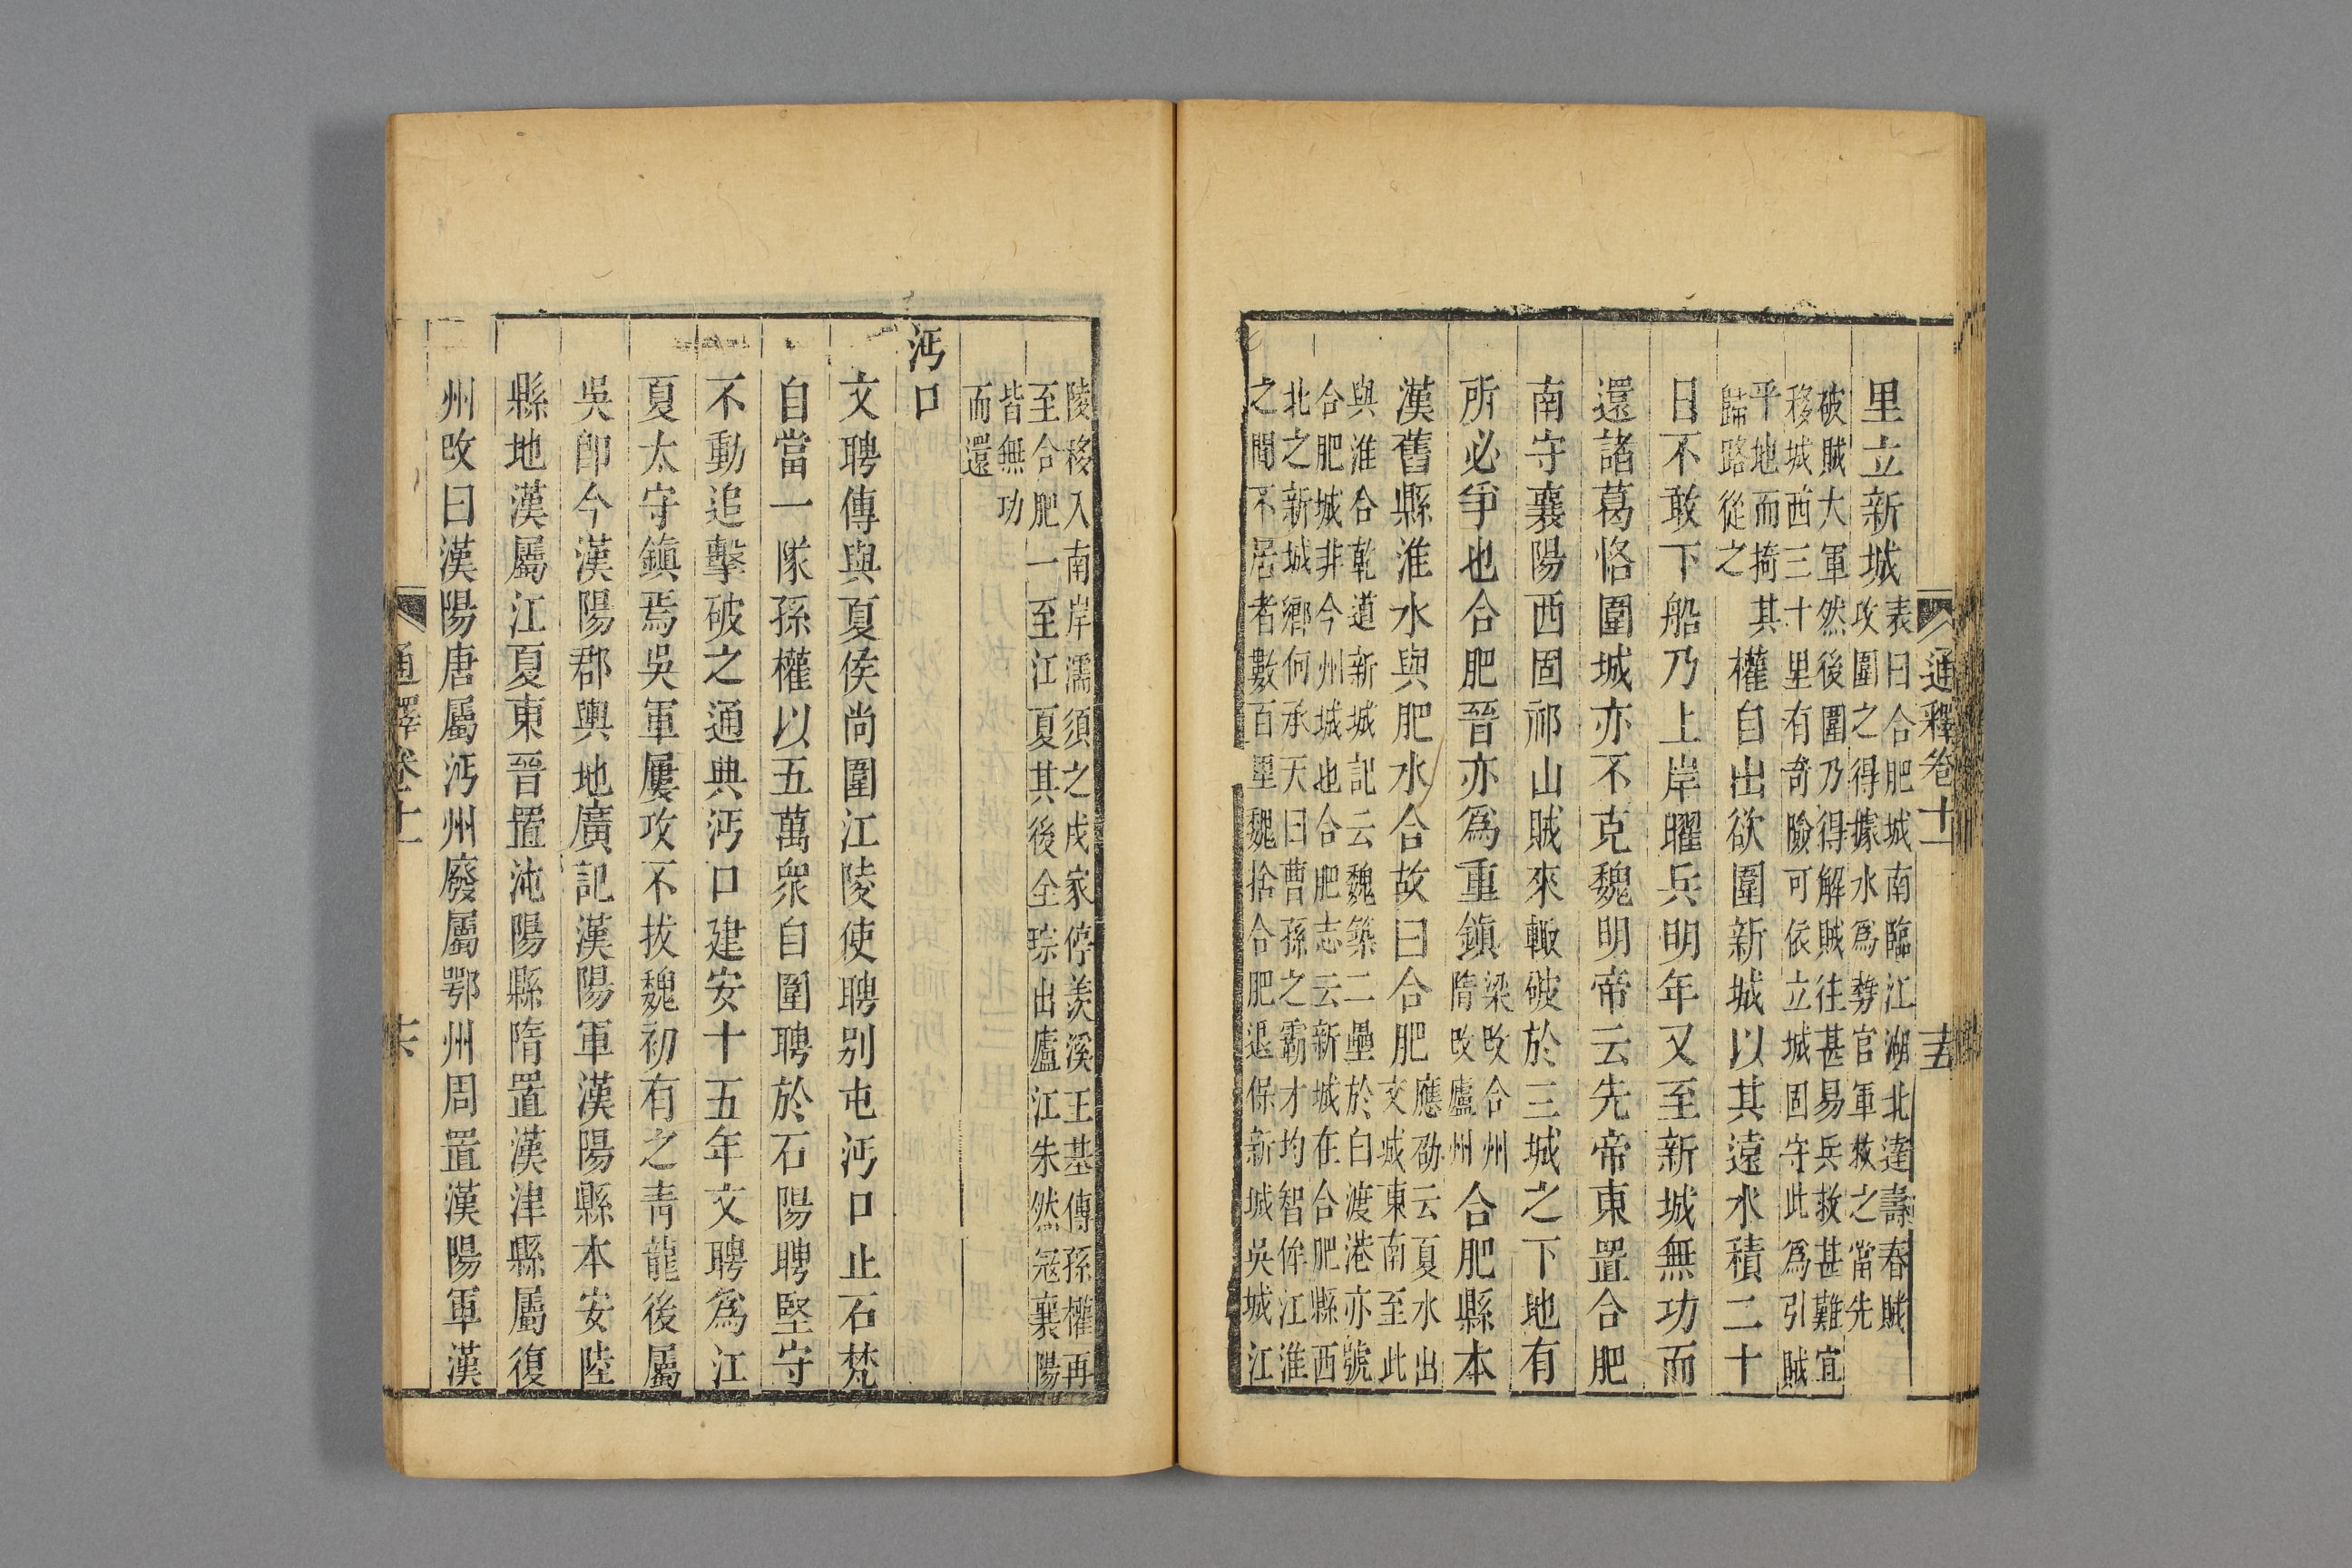 通釋卷十一
十五
里立新城表曰合肥城南臨江湖北達壽春賊
攻圍之得據水爲勢官軍救之當先
破賊大軍然後圍乃得解賊往甚易兵救甚難宜
移城西三十里有奇險可依立城固守此爲引賊
平地而掎其
歸路從之權自出欲圍新城以其遠水積二十
日不敢下船乃上岸曜兵明年又至新城無功而
還諸葛恪圍城亦不克魏明帝云先帝東置合肥
南守襄陽西固祁山賊來輙破於三城之下地有
所必爭也合肥晉亦爲重鎮梁改合州
隋改廬州合肥縣本
漢舊縣淮水與肥水合故曰合肥應劭云夏水出
父城東南至此
與淮合乾道新城記云魏築二壘於白渡港亦號
合肥城非今州城也合肥志云新城在合肥縣西
北之新城鄉何承天曰曹孫之霸才均智侔江淮
之間不居者數百里魏捨合肥退保新城吳城江
陵移入南岸濡須之戍家停羨溪王基傳孫權再
至合肥一至江夏其後全琮出廬江朱然寇襄陽
皆無功
而還
沔口
文聘傳與夏侯尚圍江陵使聘别屯沔口止石梵
自當一隊孫權以五萬衆自圍聘於石陽聘堅守
不動追擊破之通典沔口建安十五年文聘爲江
夏太守鎮焉吳軍屢攻不拔魏初有之青龍後屬
吳卽今漢陽郡輿地廣記漢陽軍漢陽縣本安陸
縣地漢屬江夏東晉置沌陽縣隋置漢津縣屬復
州改曰漢陽唐屬沔州廢屬鄂州周置漢陽軍漢
通釋卷十一
十六